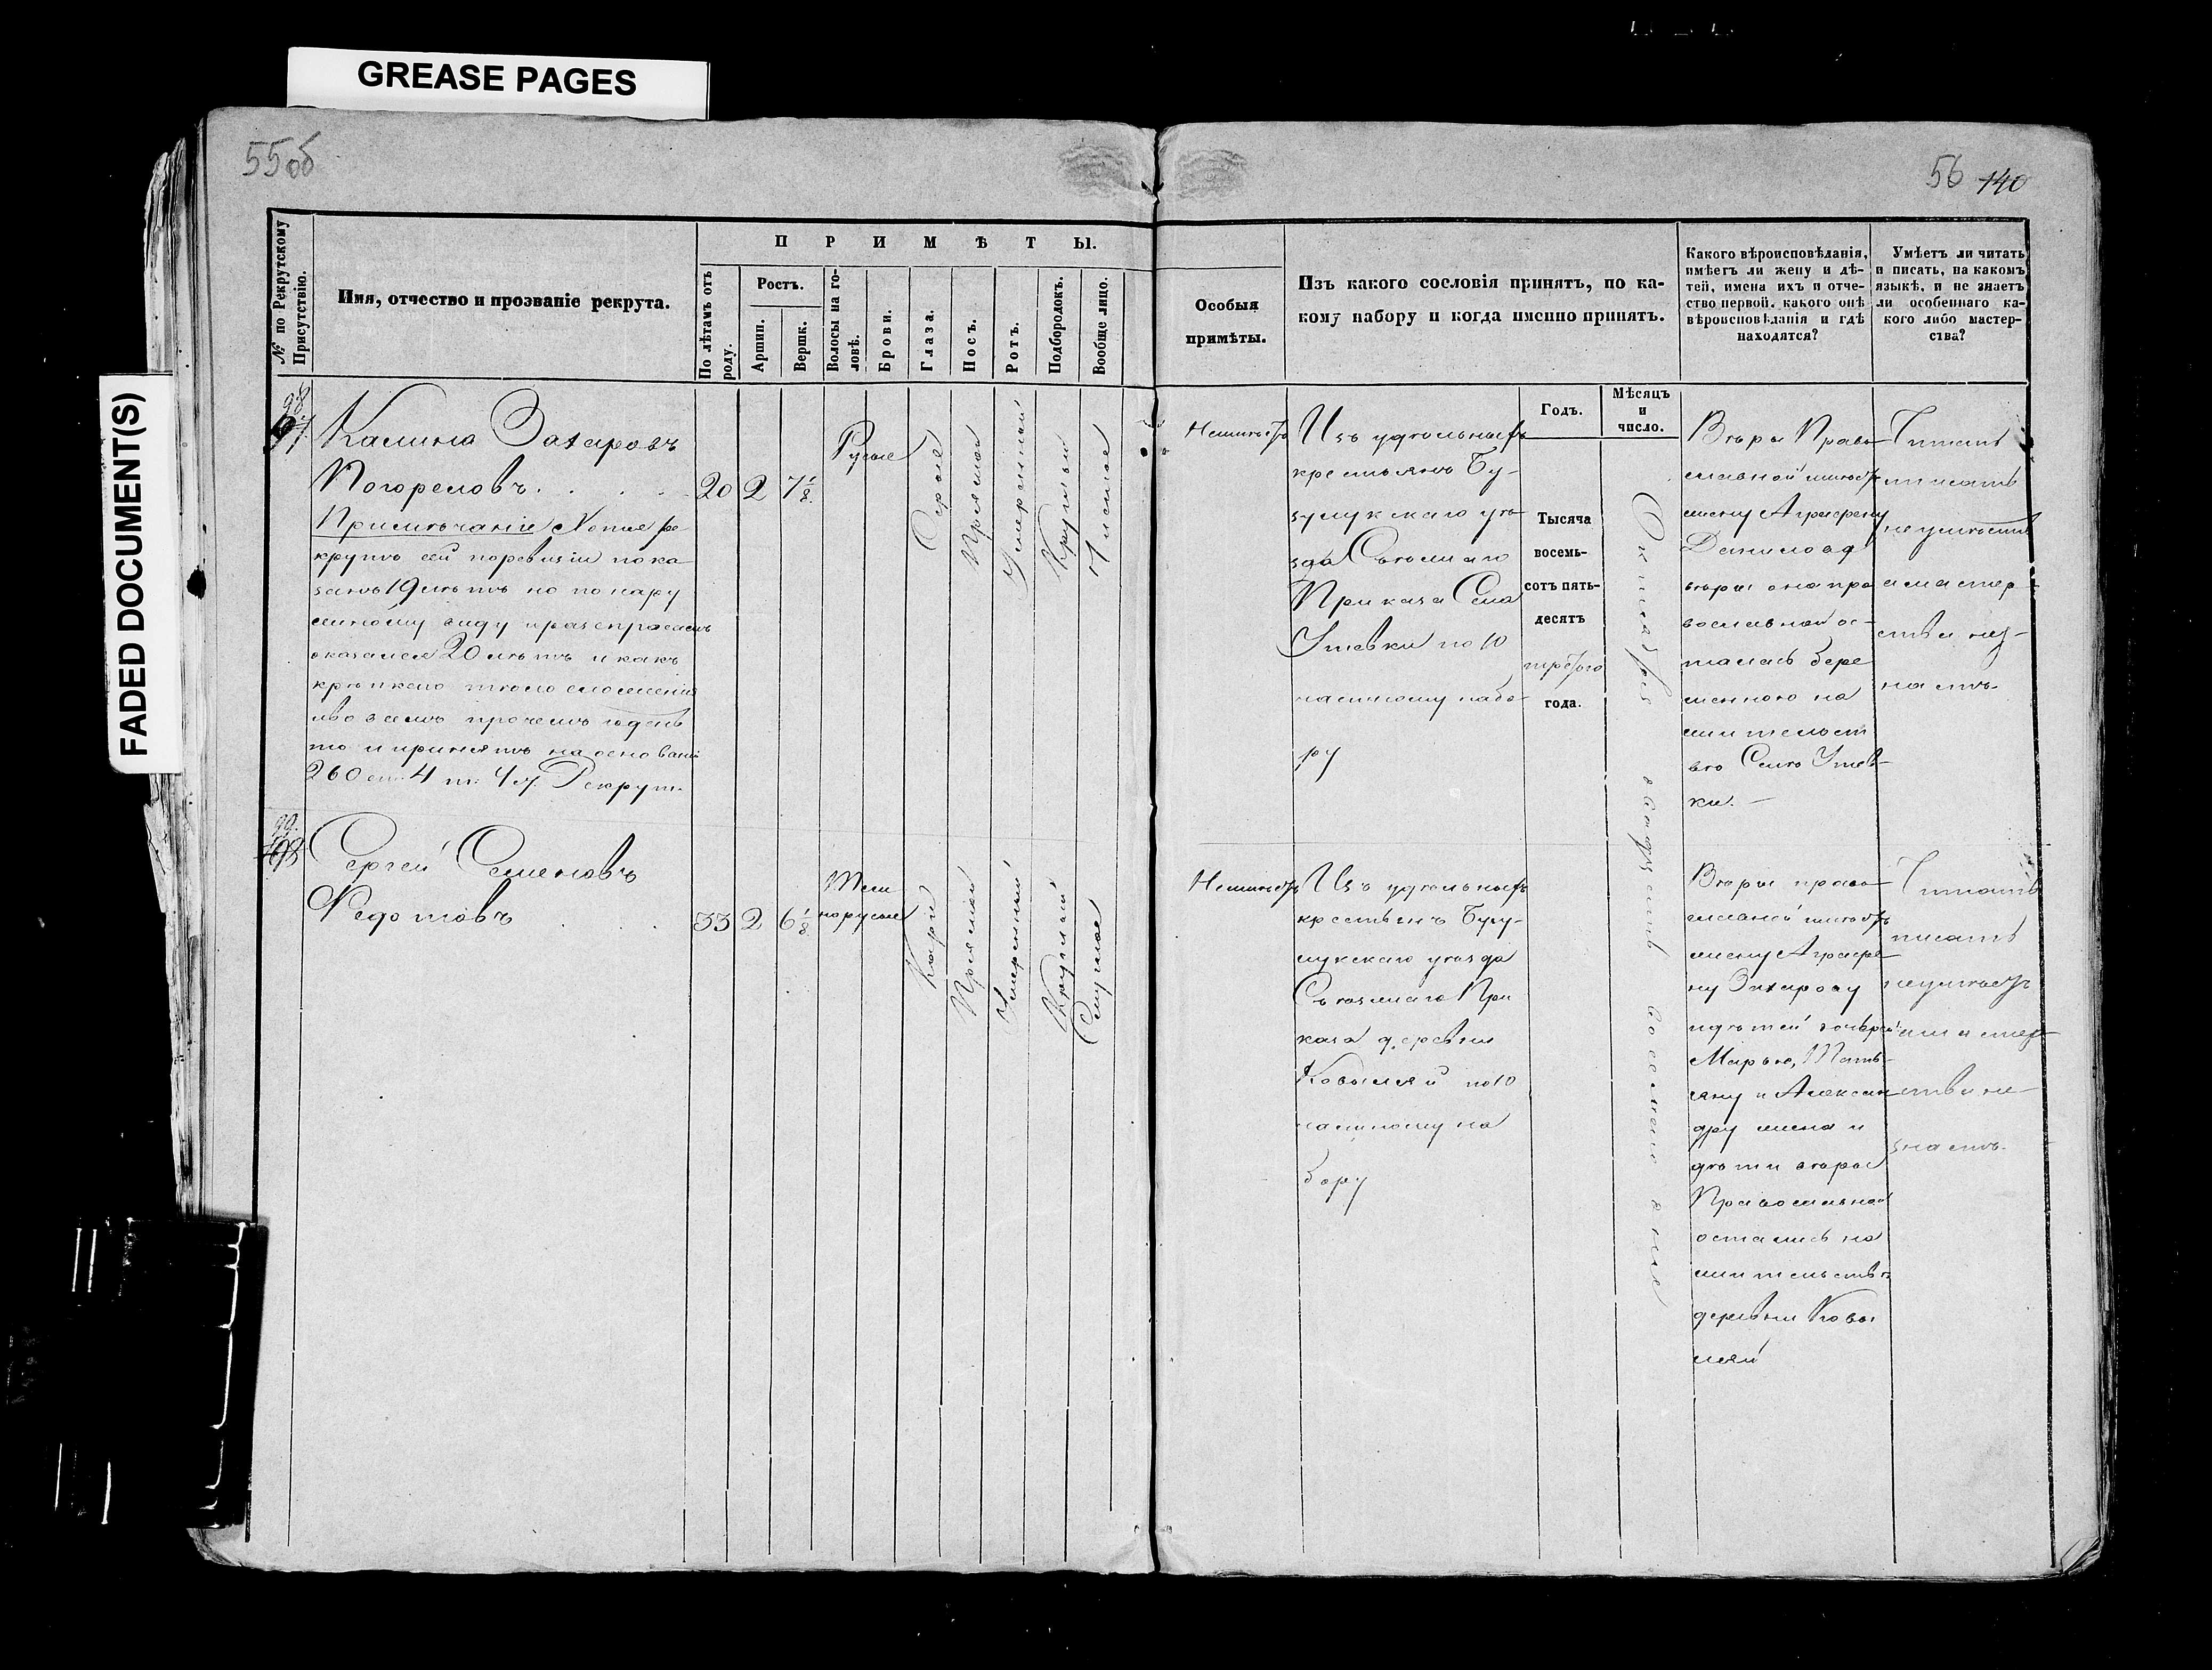 GREASE PAGES
FADED DOCUMENT(S)
55об
56 140
№ по Рекрутскому Присутствію.
Имя, отчество и прозваніе рекрута.
ПРИМѢТЫ.
По лѣтамъ отъ роду.
Ростъ.
Аршин.
Вершк.
Волосы на головѣ.
Брови.
Глаза.
Носъ.
Ротъ.
Подбородокъ.
Вообще лицо.
Особыя
примѣты.
Изъ какого сословія принятъ, по ка-
кому набору и когда именно принятъ.
Годъ.
Мѣсяцъ
и
число.
Какого вѣроисповѣданія,
имѣетъ ли жену и дѣ-
тей, имена ихъ и отче-
ство первой, какого онѣ
вѣроисповѣданія и гдѣ
находятся?
Умѣетъ ли читать
и писать, на какомъ
языкѣ, и не знаетъ
ли особеннаго ка-
кого либо мастер-
ства?
98
97
Калина Захаровъ
Погореловъ. . . .
Примѣчаніе Хотя ре
крутъ сей поревизіи пока
занъ 19 лѣтъ но по нару
жному виду иразспросамъ
оказался 20 лѣтъ и какъ
крѣпкаго тѣлосложенія
ивовсемъ прочемъ годенъ
то и принятъ на основаніи
260 ст. 4 т. Рекрут.
20
2
7 1/8
Русые
Серые
Прямой
Умеренный
Круглый
Чистое
Неимѣетъ
Изъ удѣльныхъ
крестьянъ Бу-
зулукскаго уѣ
зда Съѣзжаго
Приказа Села
Утевки по 10
частному набо-
ру
Тысяча
восемь-
сотъ пять-
десятъ
третьяго
года.
Октября двадцать восьмаго дня
Вѣры Право
славной имѣетъ
жену Аграфену
Данилову
вѣры она пра
вославной ос-
талась бере
менною на
жительст
вѣ Селѣ Утев-
ки. —
Читать
писать
неумѣетъ
а мастер
ства нез-
наетъ.
99
98
Сергей Семеновъ
Федотовъ . . .
33
2
6 1/8
Темнорусые
Карие
Прямой
Умеренный
Круглый
Смуглое
Неимѣетъ
Изъ удѣльныхъ
крестьянъ Бузу-
лукскаго уѣзда
Съѣзжаго При
каза деревни
Ковылей по 10
частному на
бору
Вѣры право
славной имѣетъ
жену Аграфе
ну Захарову
идѣтей дочерей
Марью, Тать-
яну и Алексан
дру жена и
дѣти вѣры
Православной
остались на
жительствѣ
деревни Ковы
ляй
Читать
писать
неумѣетъ
и мастер
ства не
знаетъ.